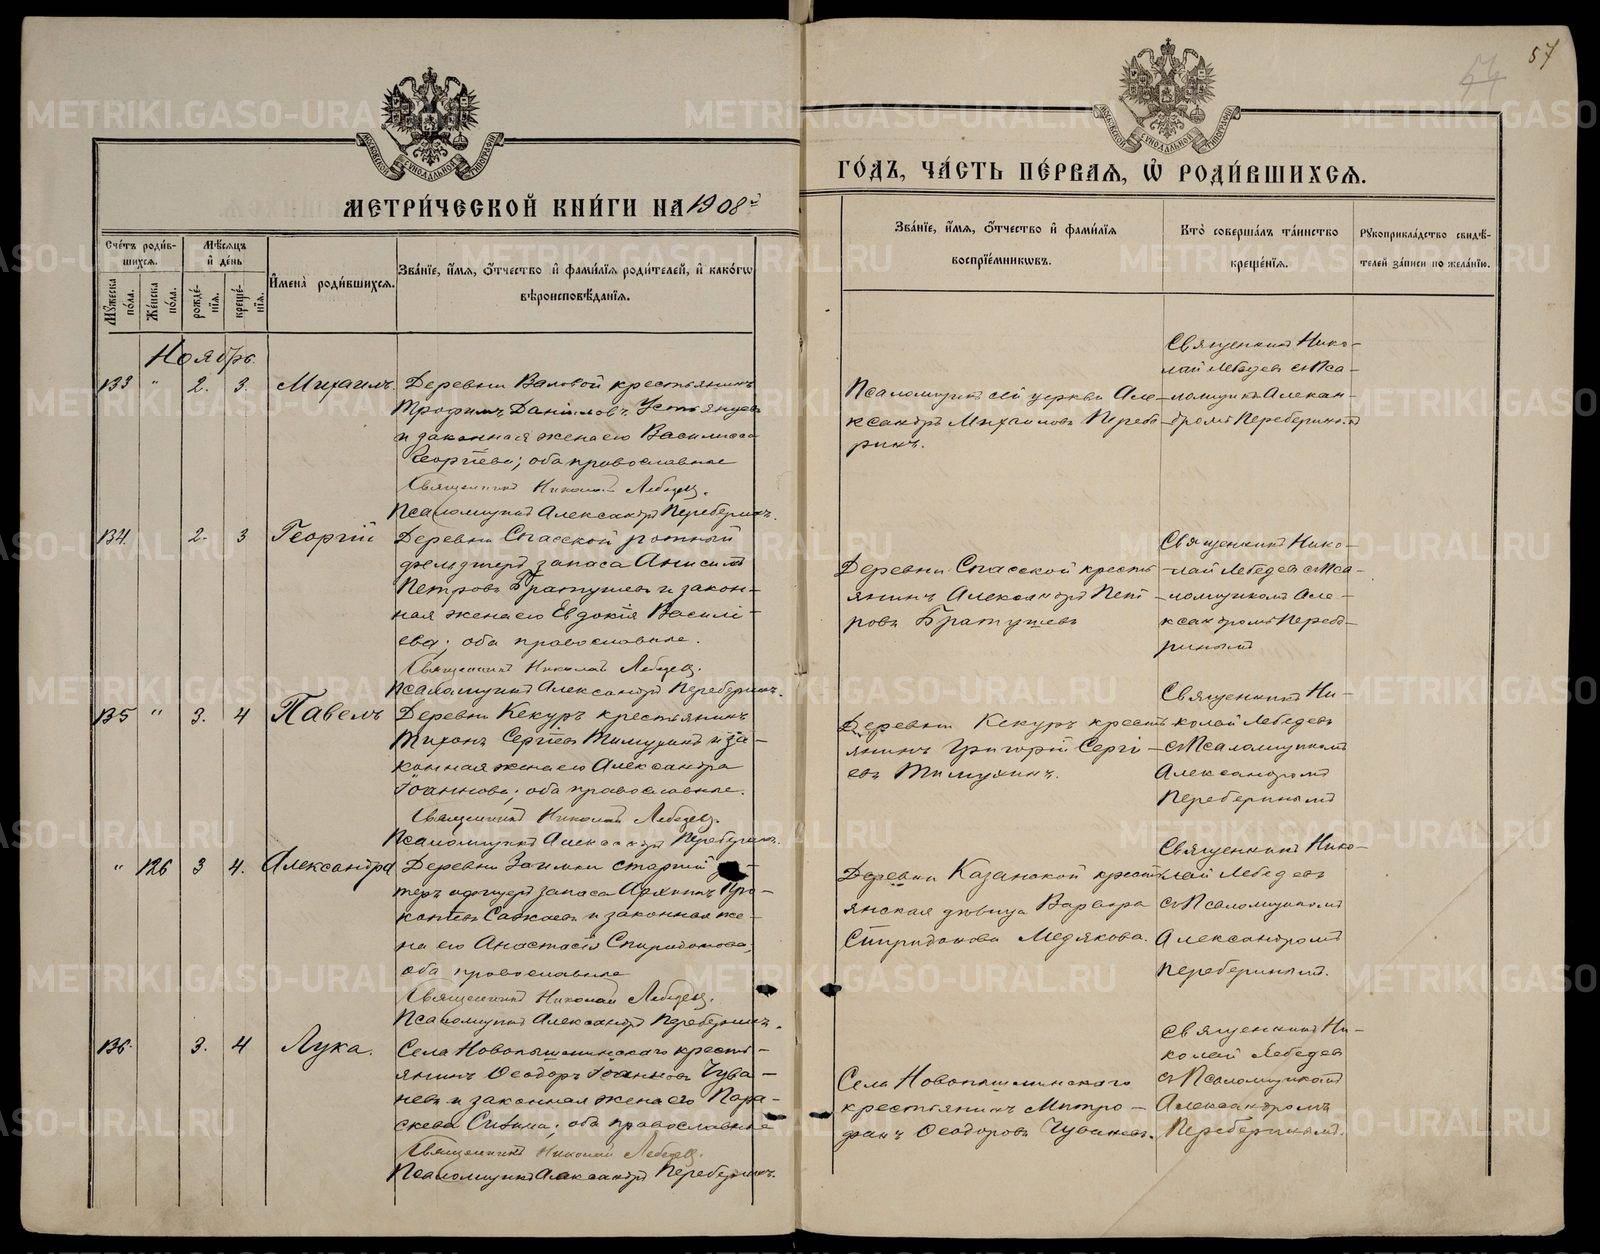 57
54
МЕТРИ́ЧЕСКОЙ КНИ́ГИ НА 1908й
ГО́ДЪ, ЧА́СТЬ ПЕ́РВАѦ, Ѡ҆ РОДИ́ВШИХСѦ.
Сче́тъ роди́в-
шихсѧ.
Мꙋ́жеска по́ла.
Же́нска по́ла.
Мѣ́сѧцъ
и҆ де́нь
рожде́-
нїѧ.
креще́-
нїѧ.
И҆мена̀ роди́вшихсѧ.
Зва́нїе, и҆́мѧ, ѻ҆́тчество и҆ фами́лїѧ роди́телей, и҆ како́гѡ
вѣроисповѣ́данїѧ.
Зва́нїе, и҆́мѧ, ѻ҆́тчество и҆ фами́лїѧ
воспрїе́мникѡвъ.
Кто̀ соверша́лъ та́инство
креще́нїѧ.
Рꙋкоприкла́дство свидѣ́-
телей за́писи по жела́нїю.
Ноябрь.
133 " 2. 3. Михаилъ.
Деревни Валовой крестьянинъ
Трофимъ Данiиловъ Устьянцевъ
и законная жена его Василисса
Георгiева; оба православные
Священникъ Николай Лебедев.
Псаломщикъ Александръ Переберинъ.
Псаломщикъ сей церкви Але-
ксандръ Михаиловъ Перебе-
ринъ.
Священникъ Нико-
лай Лебедев с Пса-
ломщикомъ Алексан-
дромъ Переберинымъ
134. 2. 3 Георгiй
Деревни Спасской ротный
фельдшеръ запаса Анисимъ
Петровъ Братушевъ и закон-
ная жена его Евдокiя Василi-
ева; оба православные.
Священникъ Николай Лебедев.
Псаломщикъ Александръ Переберинъ.
Деревни Спасской кресть-
янинъ Александръ Пет-
ровъ Братушевъ
Священникъ Нико-
лай Лебедев с Пса-
ломщикомъ Але-
ксандромъ Перебе-
ринымъ
135 " 3. 4 Павелъ
Деревни Кекуръ крестьянинъ
Тихонъ Сергiевъ Тимухинъ и за-
конная жена его Александра
Iоаннова; оба православные.
Священникъ Николай Лебедев.
Псаломщикъ Александръ Переберинъ.
Деревни Кекуръ кресть-
янинъ Григорiй Сергi-
евъ Тимухинъ.
Священникъ Ни-
колай Лебедевъ
с Псаломщикомъ
Александромъ
Переберинымъ
" 126 3 4. Александра
Деревни Заимки старшiй ун-
теръ офицеръ запаса Архипъ Про-
копiевъ Сажаевъ и законная же-
на его Анастасiя Спиридонова;
оба православные
Священникъ Николай Лебедев.
Псаломщикъ Александръ Переберинъ.
Деревни Казанской кресть-
янская дѣвица Варвара
Спиридонова Медякова.
Священникъ Нико-
лай Лебедевъ
с Псаломщикомъ
Александромъ
Переберинымъ.
136. 3. 4 Лука.
Села Новопышминскаго кресть-
янинъ Ѳеодоръ Iоанновъ Чува-
невъ и законная жена его Пара-
скева Силина; оба православные
Священникъ Николай Лебедев.
Псаломщикъ Александръ Переберинъ.
Села Новопышминскаго
крестьянинъ Митро-
фанъ Ѳеодоровъ Чуваневъ.
Священникъ Ни-
колай Лебедев
с Псаломщикомъ
Александромъ
Переберинымъ.
METRIKI.GASO-URAL.RU